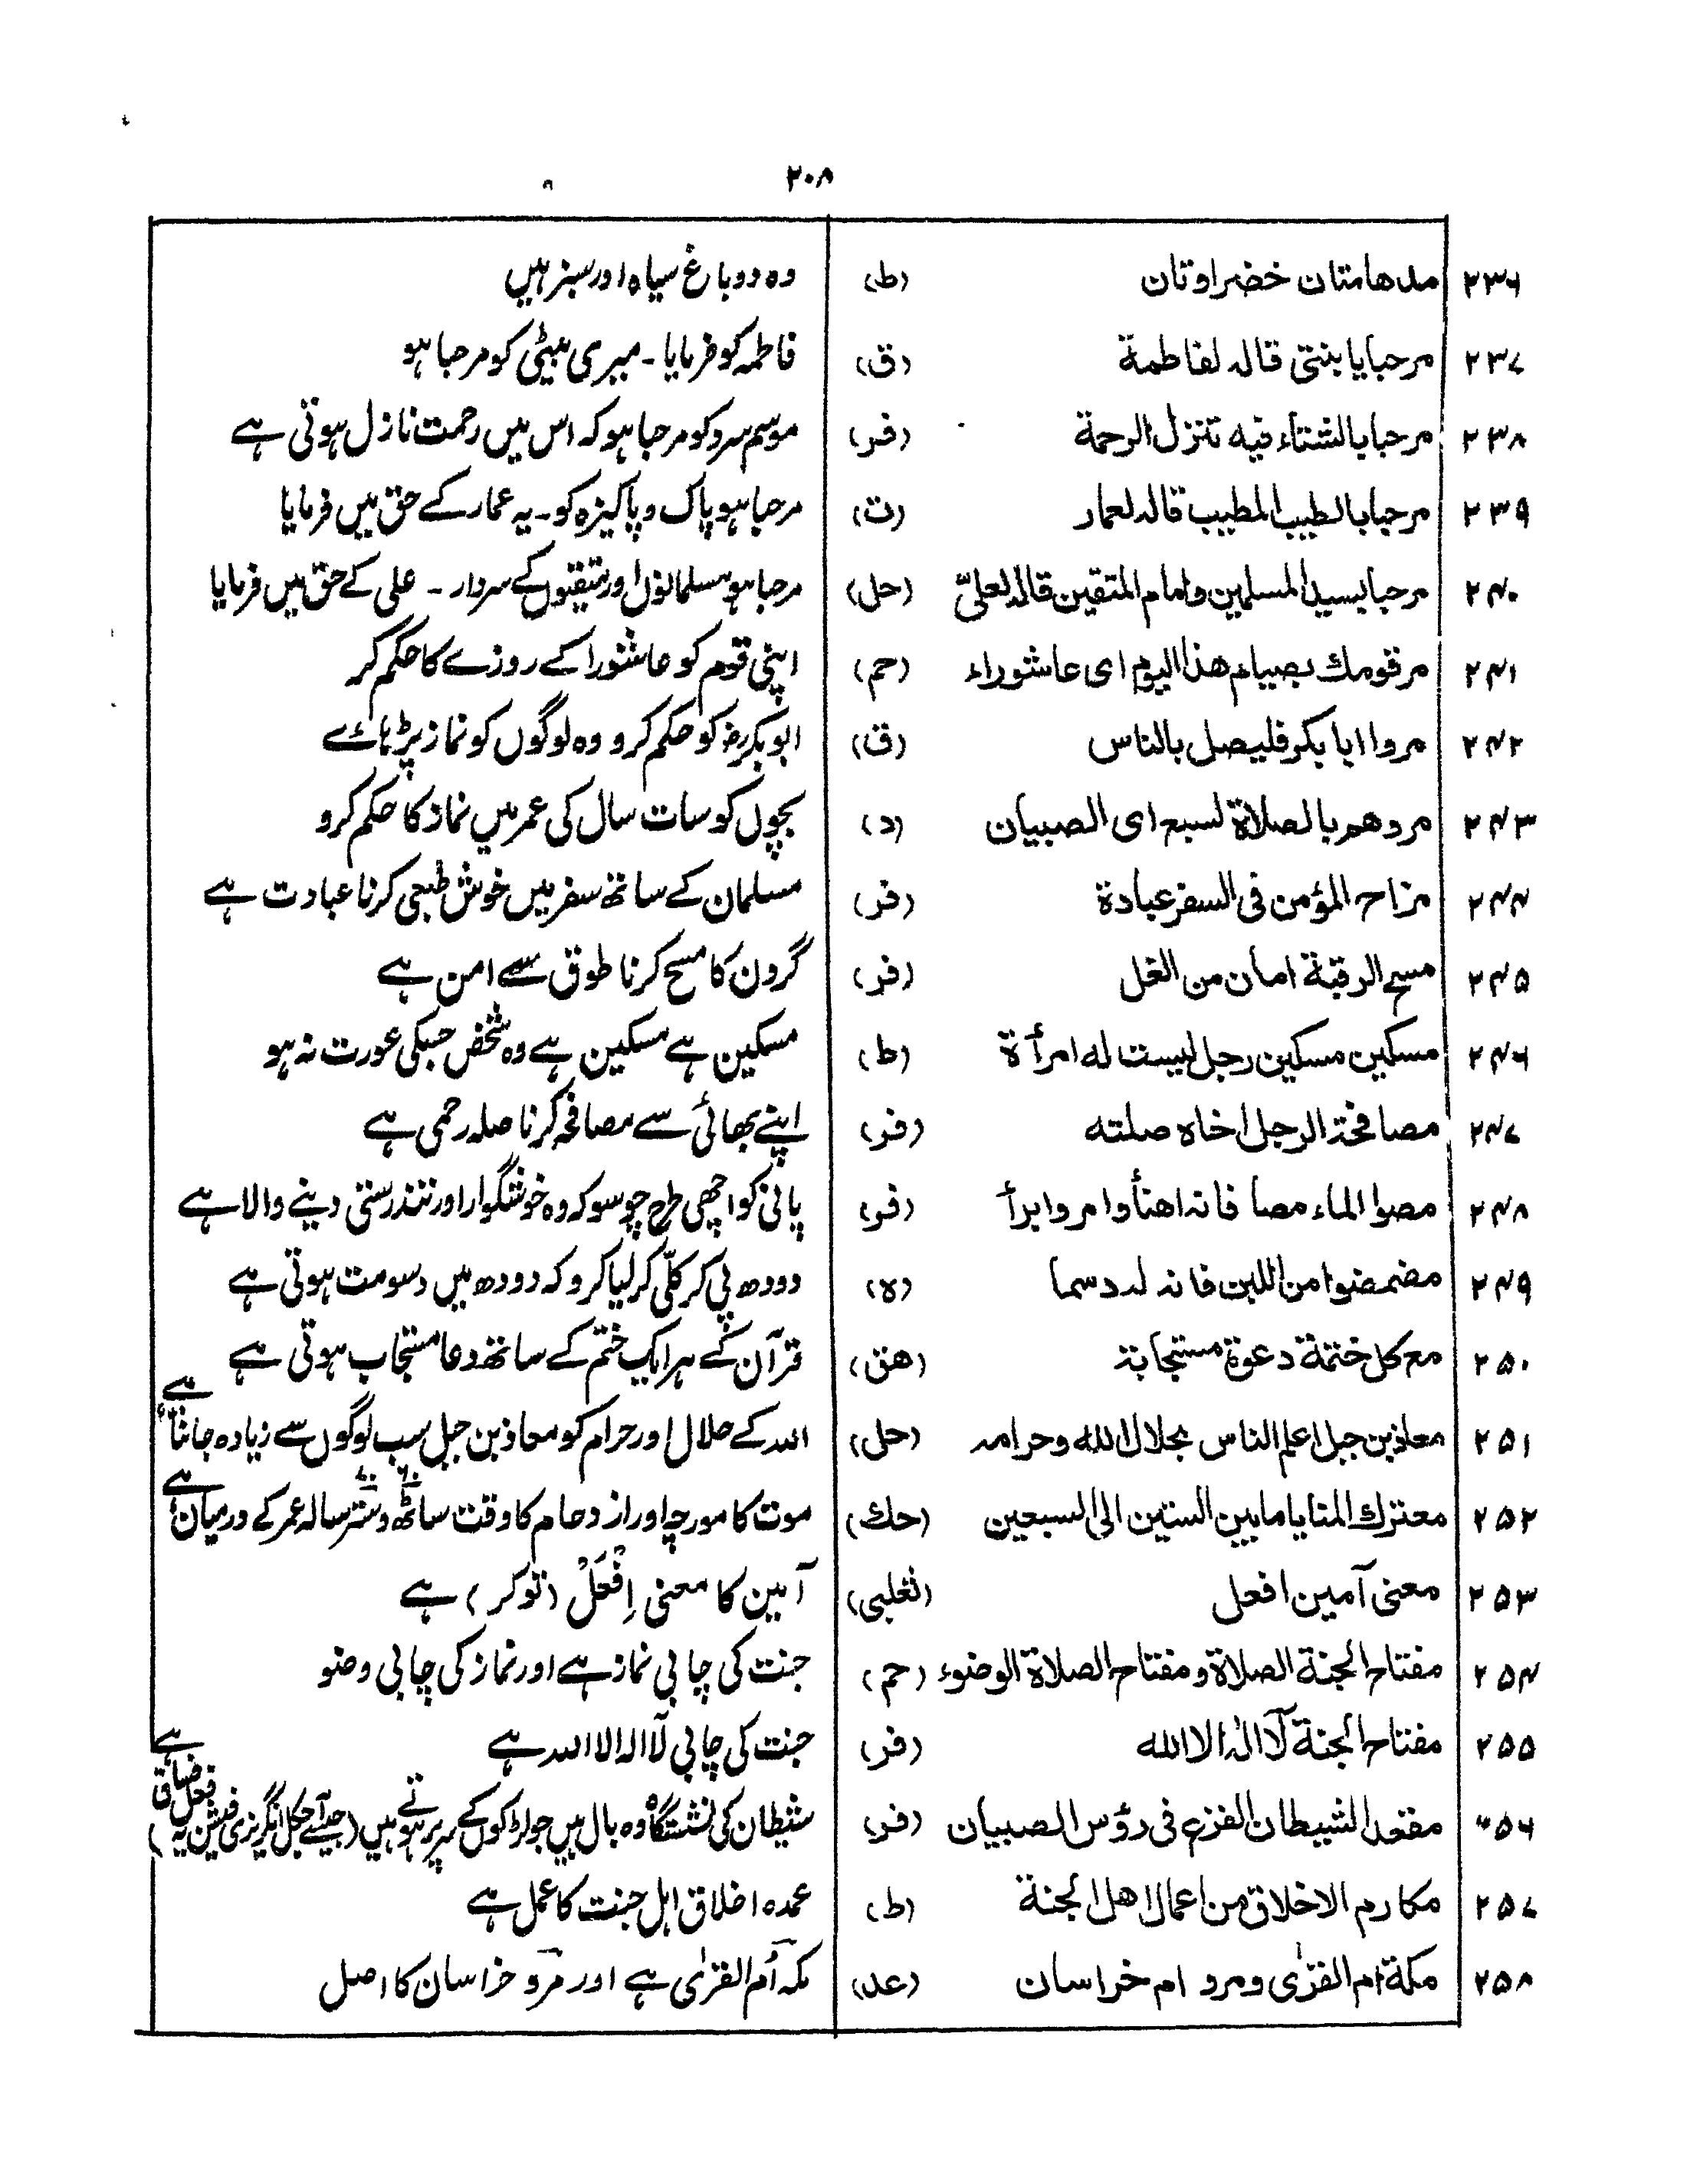 ۲۰۸
۲۳۶ مدهامتان خضراوتان (ط) وہ دو باغ سیاہ اور سبز ہیں
۲۳۷ مرحبا یا بنتی قاله لفاطمة (ق) فاطمہ کو فرمایا۔ میری بیٹی کو مرحبا ہو
۲۳۸ مرحبا بالشتاء فیه تنزل الرحمة (فر) موسم سرد کو مرحبا ہو کہ اس میں رحمت نازل ہوتی ہے
۲۳۹ مرحبا بالطیب المطیب قاله لعمار (ت) مرحبا ہو پاک و پاکیزہ کو۔ یہ عمار کے حق میں فرمایا
۲۴۰ مرحبا بسید المسلمین وامام المتقین قاله لعلیّ (حل) مرحبا ہو مسلمانوں اور متقیوں کے سردار ۔ علی کے حق میں فرمایا
۲۴۱ مر قومك بصیام هذا الیوم ای عاشوراء (حم) اپنی قوم کو عاشورا کے روزے کا حکم کر
۲۴۲ مروا ابا بکر فلیصل بالناس (ق) ابوبکرؓ کو حکم کرو وہ لوگوں کو نماز پڑہائے
۲۴۳ مروهم بالصلاة لسبع ای الصبیان (د) بچوں کو سات سال کی عمر میں نماز کا حکم کرو
۲۴۴ مزاح المؤمن فی السفر عبادة (فر) مسلمان کے ساتھ سفر میں خوش طبعی کرنا عبادت ہے
۲۴۵ مسح الرقبة امان من الغل (فر) گردن کا مسح کرنا طوق سے امن ہے
۲۴۶ مسکین مسکین رجل لیست له امرأة (ط) مسکین ہے مسکین ہے وہ شخص جسکی عورت نہ ہو
۲۴۷ مصافحة الرجل اخاه صلته (فر) اپنے بھائی سے مصافحہ کرنا صلہ رحمی ہے
۲۴۸ مصوا الماء مصا فانه اهنأ وامر وابرأ (فر) پانی کو اچھی طرح چوسو کہ وہ خوشگوار اور تندرستی دینے والا ہے
۲۴۹ مضمضوا من اللبن فانه له دسما (ہ) دودھ پی کر کلّی کر لیا کرو کہ دودھ میں دسومت ہوتی ہے
۲۵۰ مع کل ختمة دعوة مستجابة (هق) قرآن کے ہر ایک ختم کے ساتھ دعا مستجاب ہوتی ہے
۲۵۱ معاذ بن جبل اعلم الناس بحلال الله وحرامه (حل) اللہ کے حلال اور حرام کو معاذ بن جبل سب لوگوں سے زیادہ جانتا ہے
۲۵۲ معترك المنایا ما بین الستین الی السبعین (حك) موت کا مورچہ اور ازدحام کا وقت ساٹھ و ستر سالہ عمر کے درمیان ہے
۲۵۳ معنی آمین افعل (ثعلبی) آمین کا معنی اِفْعَلْ (تو کر) ہے
۲۵۴ مفتاح الجنة الصلاة ومفتاح الصلاة الوضوء (حم) جنت کی چابی نماز ہے اور نماز کی چابی وضو
۲۵۵ مفتاح الجنة لآ اله الا الله (فر) جنت کی چابی لآ الہ الا اللہ ہے ہے
۲۵۶ مقعد الشیطان القزع فی رؤس الصبیان (فر) شیطان کی نشستگاہ وہ بال ہیں جو لڑکوں کے سر پر ہوتے ہیں (جیسے آجکل انگریزی فیشن یہ فعل
۲۵۷ مکارم الاخلاق من اعمال اهل الجنة (ط) عمدہ اخلاق اہل جنت کا عمل ہے
۲۵۸ مکة ام القرٰی ومرو ام خراسان (عد) مکہ اُم القرٰی ہے اور مرو خراسان کا اصل